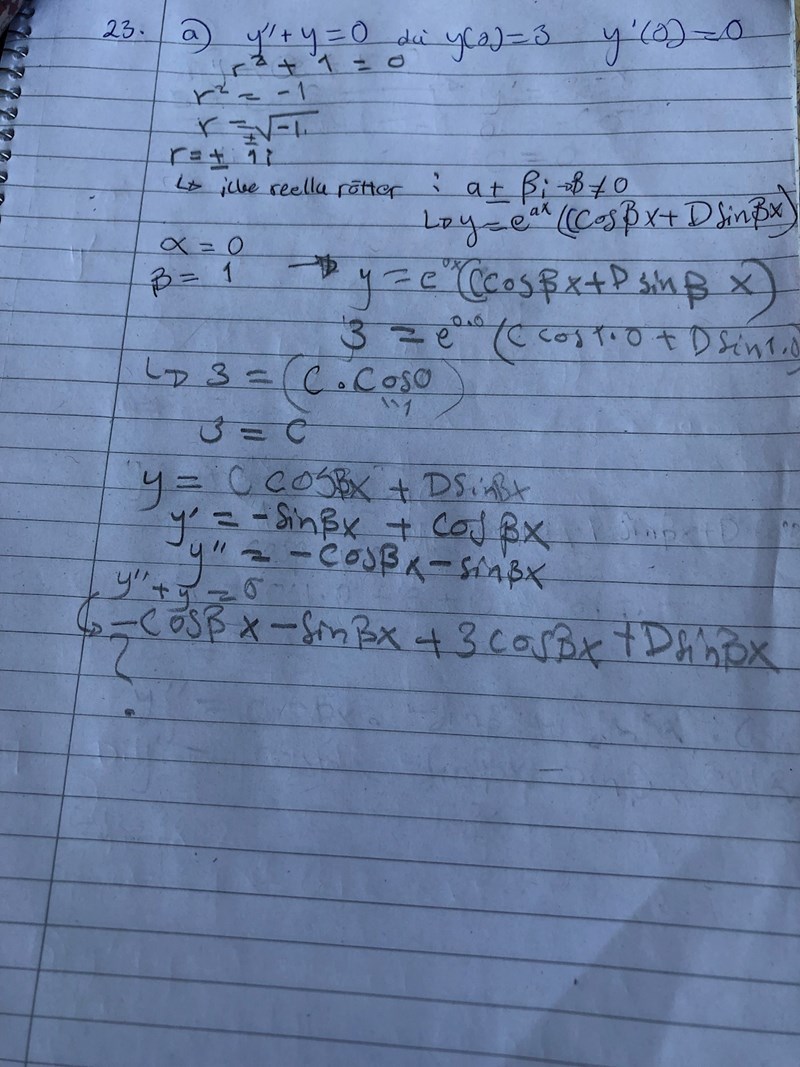 23. a) y'' + y = 0 då y(0) = 3 y'(0) = 0
r² + 1 = 0
r² = -1
r = ±√-1
r = ± 1i
↳ icke reella rötter : a ± βi → β ≠ 0
↳ y = e^ax (C cos βx + D sin βx)
α = 0
β = 1 → y = e^0x (C cos β x + D sin β x)
3 = e^0.0 (C cos 1.0 + D sin 1.0)
↳ 3 = (C · cos 0)
"1
3 = C
y = C cos βx + D sin βx
y' = -sin βx + cos βx
y'' = -cos βx - sin βx
y'' + y = 0
↳ -cos β x - sin βx + 3 cos βx + D sin βx
?